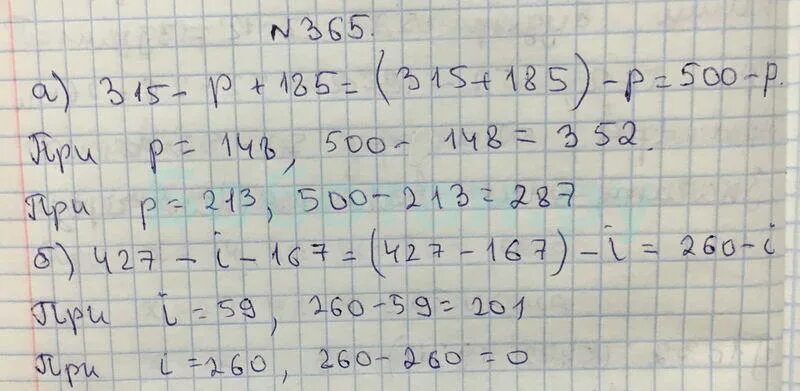 №365.
а) 315 - p + 185 = (315 + 185) - p = 500 - p.
При p = 148, 500 - 148 = 352.
При p = 213, 500 - 213 = 287
б) 427 - i - 167 = (427 - 167) - i = 260 - i
При i = 59, 260 - 59 = 201
При i = 260, 260 - 260 = 0